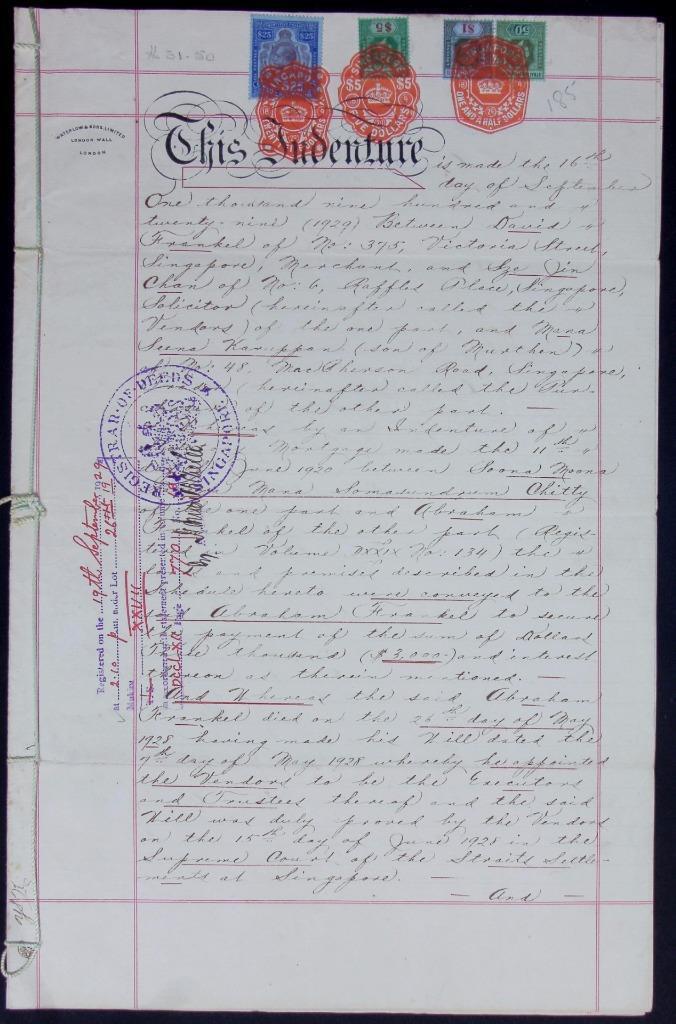 # 31.50
$25 $25
$5
$1
50
185
$5 $5
FIVE DOLLARS
ONE AND A HALF DOLLARS
WATERLOW & SONS LIMITED
LONDON WALL
LONDON
This Indenture is made the 16th
day of September
One thousand nine hundred and
twenty-nine (1929) Between David
Frankel of No: 375, Victoria Street,
Singapore, Merchant, and Sze Jin
Chan of No: 6, Raffles Place, Singapore,
Solicitor (hereinafter called the
Vendors) of the one part, and Mana
Seena Karuppan (son of Murthen)
No: 48, MacPherson Road, Singapore,
(hereinafter called the Pur-
of the other part. —
by an Indenture of
Mortgage made the 11th
June 1920 between Soona Moona
Mana Somasundrum Chitty
one part and Abraham
of the other part (Regis-
in Volume No: 134) the
and premises described in the
Schedule hereto were conveyed to the
Abraham Frankel to secure
payment of the sum of Dollars
Three thousand ($3,000-) and interest
thereon as therein mentioned. —
And Whereas the said Abraham
Frankel died on the 26th day of May
1928 having made his Will dated the
9th day of May 1928 whereby he appointed
the Vendors to be the Executors
and Trustees thereof and the said
Will was duly proved by the Vendors
on the 15th day of June 1928 in the
Supreme Court of the Straits Settle-
ments at Singapore. —
— And —
REGISTRAR OF DEEDS SINGAPORE
Registered on the 19th September 1929
at 2.10 p.m. under Lot
XXVII